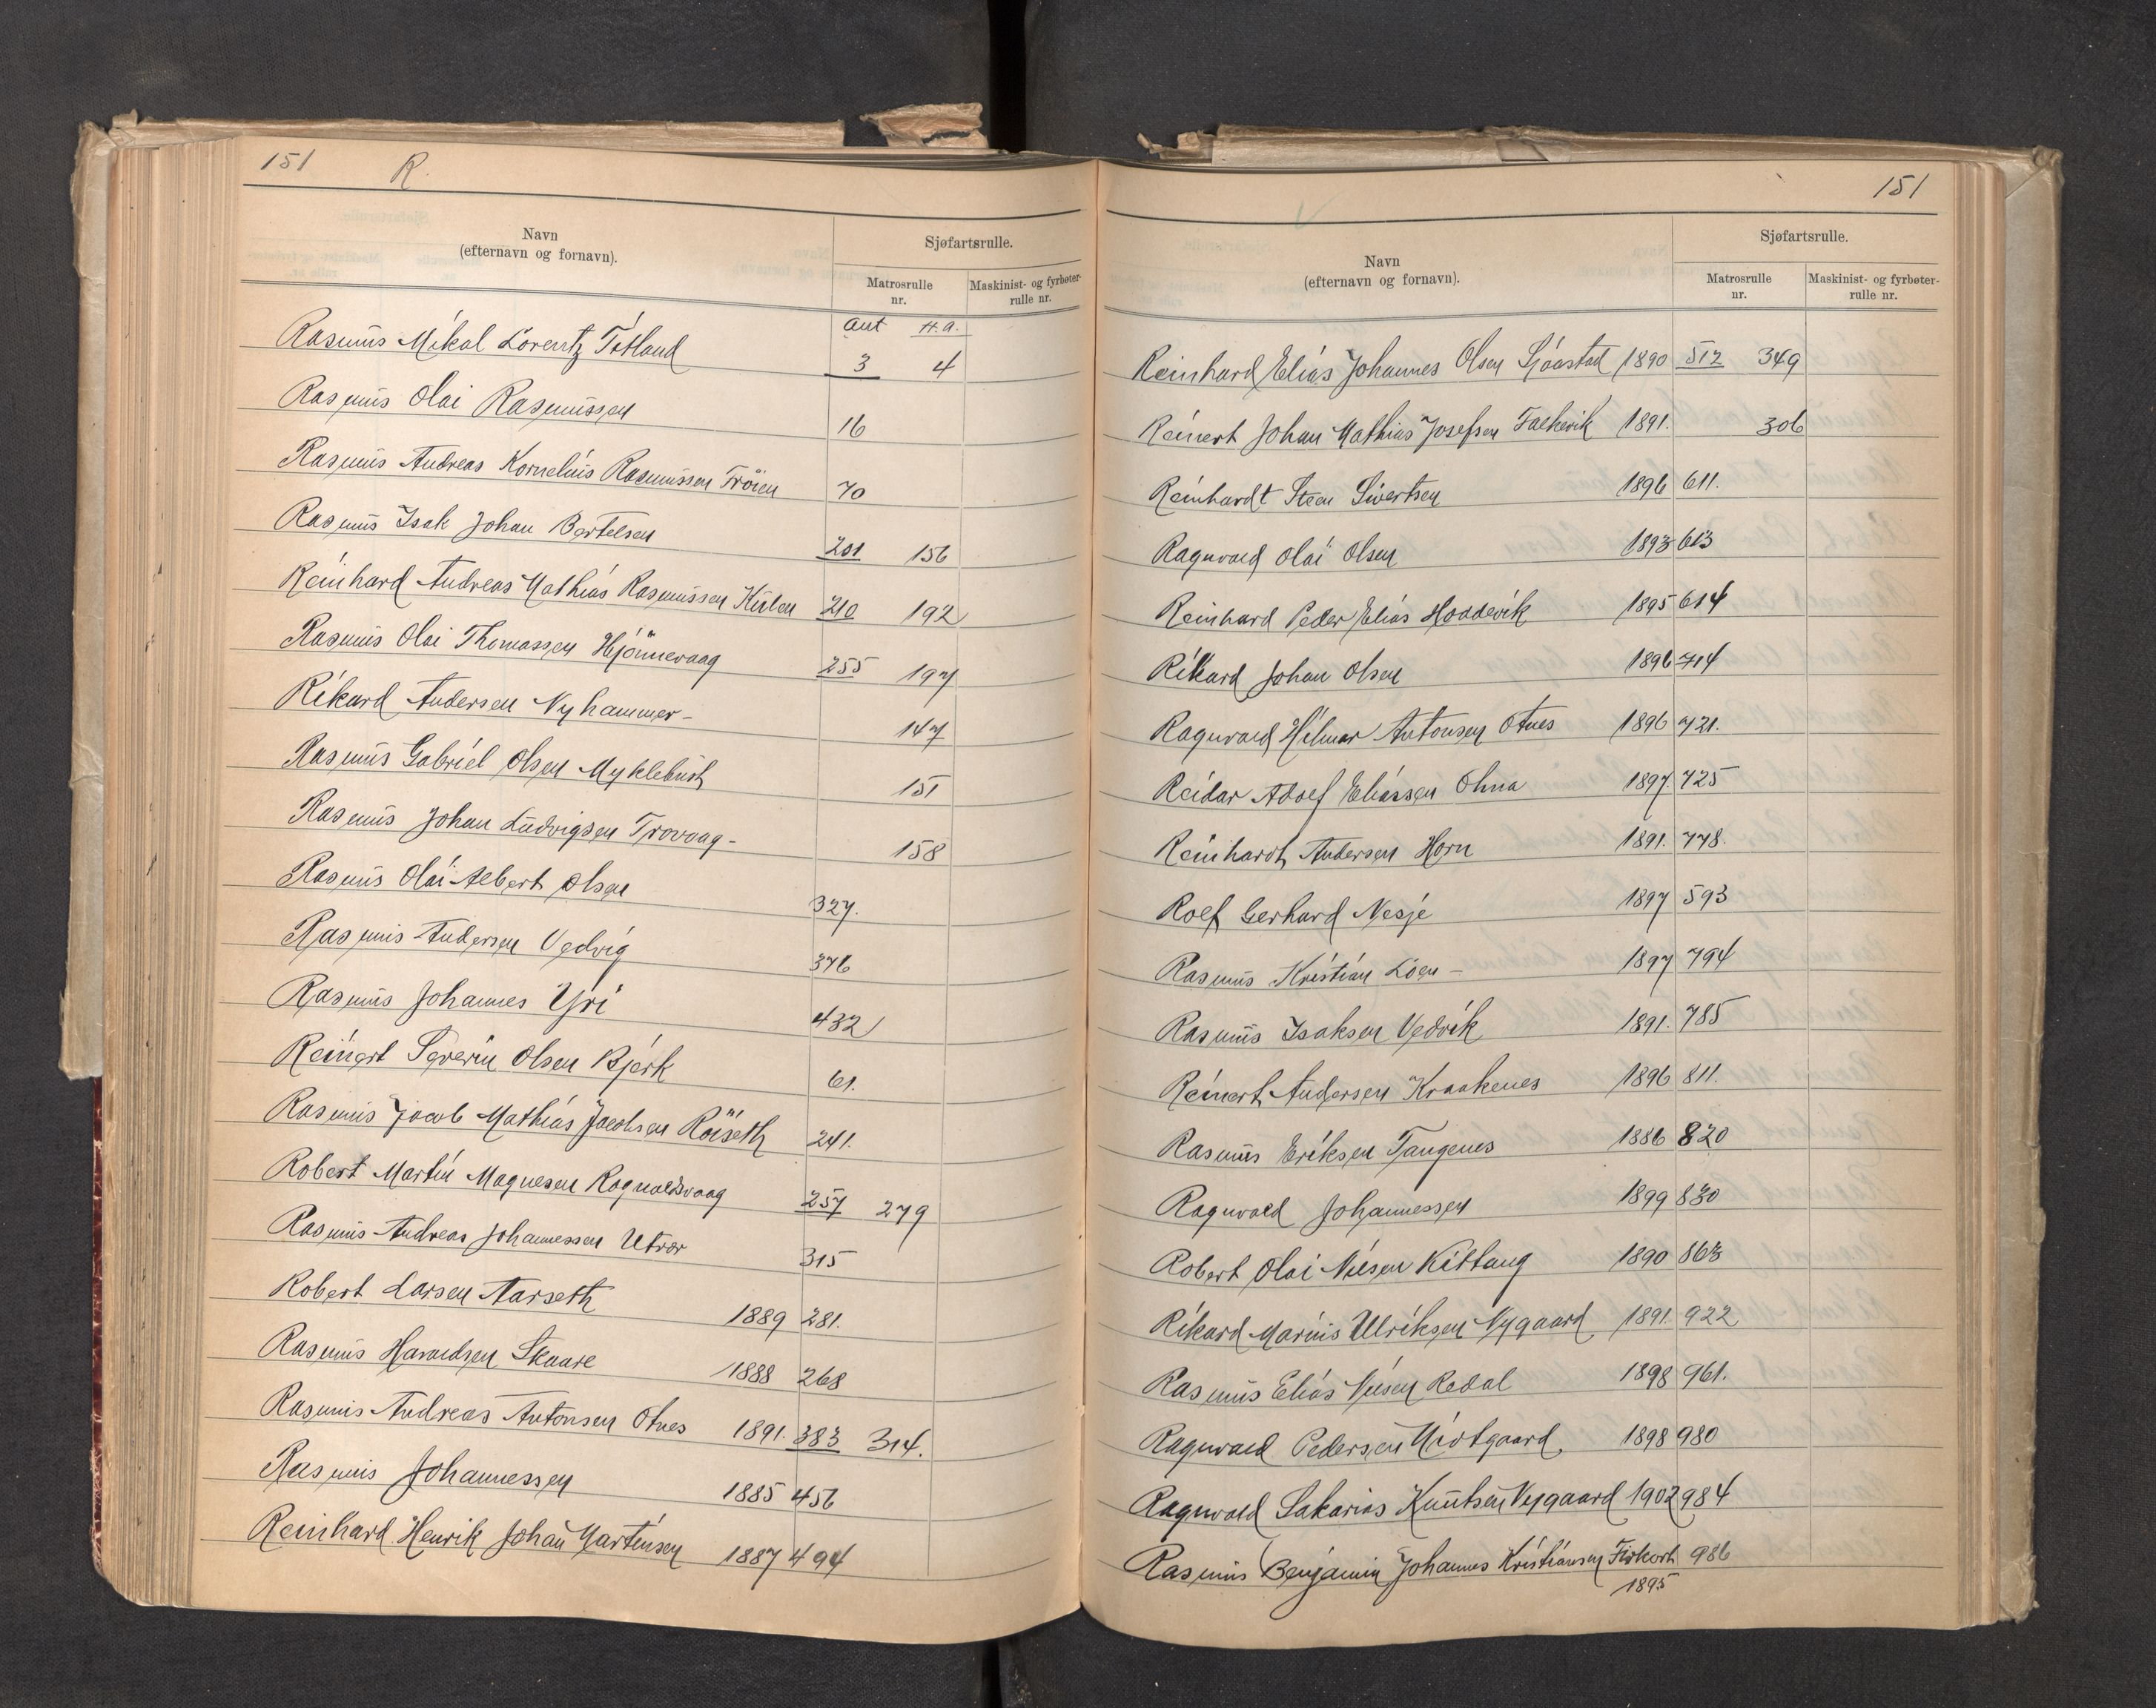 151 R.
Navn
(efternavn og fornavn).
Sjøfartsrulle.
Matrosrulle
nr.
Maskinist- og fyrbøter-
rulle nr.
Ant H.a.
Rasmus Mikal Lorentz Totland 3 4
Rasmus Olai Rasmussen 16
Rasmus Andreas Kornelius Rasmussen Fröien 70
Rasmus Isak Johan Bertelsen 201 156
Reinhard Andreas Mathias Rasmussen Kulen 210 192
Rasmus Olai Thomassen Hjönnevaag 255 197
Rikard Andersen Nyhammer- 147
Rasmus Gabriel Olsen Myklebust 151
Rasmus Johan Ludvigsen Trovaag- 158
Rasmus Olai Albert Olsen 327.
Rasmus Andersen Vedvig 376
Rasmus Johannes Yri 432
Reinert Severin Olsen Bjerk 61.
Rasmus Jacob Mathias Jacobsen Röiseth 241.
Robert Martin Magnesen Rognaldsvaag 257 279
Rasmus Andreas Johannessen Utvær 315
Robert Larsen Aarseth 1889 281.
Rasmus Haraldsen Skaare 1888 268
Rasmus Andreas Antonsen Otnes 1891. 383 314.
Rasmus Johannessen 1885 456
Reinhard Henrik Johan Martinsen 1887 494
151
Navn
(efternavn og fornavn).
Sjøfartsrulle.
Matrosrulle
nr.
Maskinist- og fyrbøter-
rulle nr.
Reinhard Elias Johannes Olsen Sjåastad 1890 512 349
Reinert Johan Mathias Josefsen Falkevik 1891. 306
Reinhardt Steen Sivertsen 1896 611.
Ragnvald Olai Olsen 1893 613
Reinhard Peder Elias Hoddevik 1895 614
Rikard Johan Olsen 1896 714
Ragnvald Hilmar Antonsen Otnes 1896 721.
Reidar Adolf Eliassen Ohna 1897. 725
Reinhardt Andersen Horn 1891. 778.
Rolf Gerhard Nesje 1897 593
Rasmus Kristian Loen - 1897 794
Rasmus Isaksen Vedvik 1891. 785
Reinert Andersen Kraakenes 1896 811.
Rasmus Eriksen Tangenes 1886 820
Ragnvald Johannessen 1899 830
Robert Olai Nilsen Kittang 1890 863
Rikard Marius Ulriksen Nygaard 1891. 922
Rasmus Elias Nilsen Redal 1898 961.
Ragnvald Pedersen Midtgaard 1898 980
Ragnvald Sakarias Knutsen Nygaard 1902 984
Rasmus Benjamin Johannes Kristiansen 986
1895